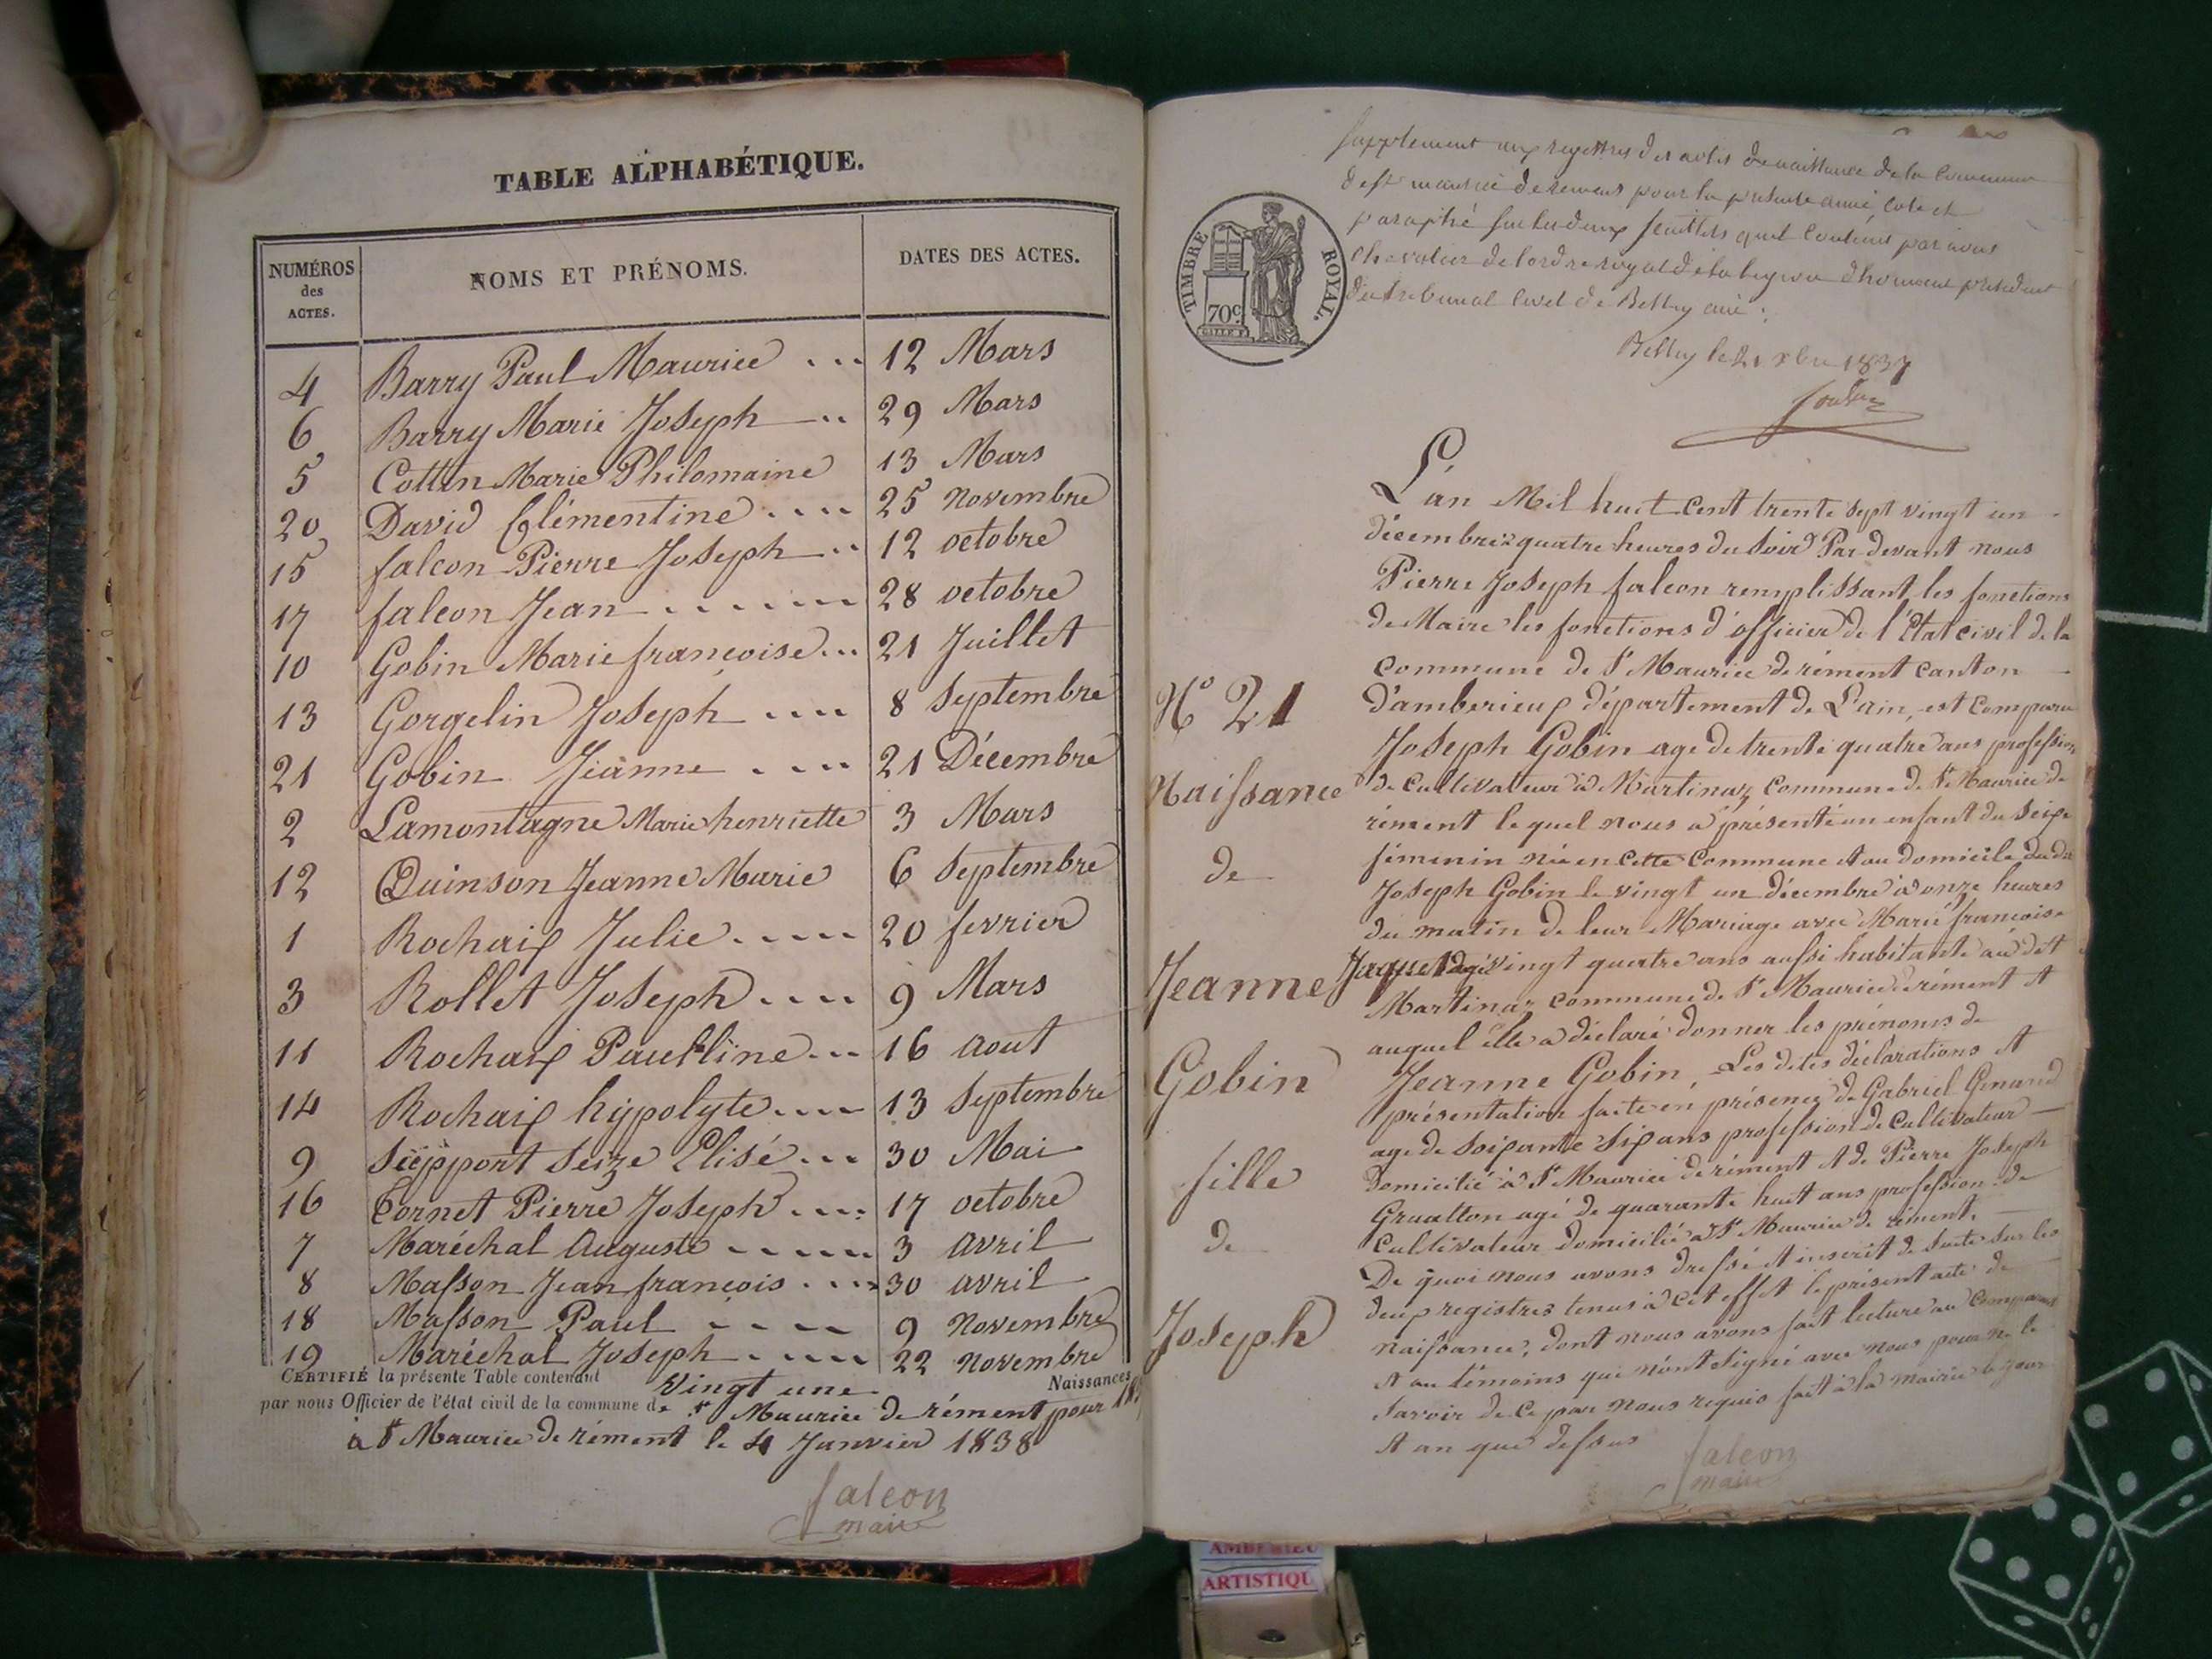 TABLE ALPHABÉTIQUE.
NUMÉROS des ACTES. NOMS ET PRÉNOMS. DATES DES ACTES.
4 Barry Paul Maurice 12 Mars
6 Barry Marie Joseph 29 Mars
5 Cottin Marie Philomaine 13 Mars
20 David Clémentine 25 Novembre
15 falcon Pierre Joseph 12 octobre
17 falcon Jean 28 octobre
10 Gobin Marie francoise 21 Juillet
13 Gorgelin Joseph 8 Septembre
21 Gobin Jeanne 21 Décembre
2 Lamontagne Marie henriette 3 Mars
12 Quinson Jeanne Marie 6 Septembre
1 Rochaix Julie 20 fevrier
3 Rollet Joseph 9 Mars
11 Rochaix Paulline 16 aout
14 Rochaix hypolyte 13 Septembre
9 Süpport Seize Elisé 30 Mai
16 Cornet Pierre Joseph 17 octobre
7 Maréchal Auguste 3 avril
8 Masson Jean francois 30 avril
18 Masson Paul 9 Novembre
19 Maréchal Joseph 22 Novembre
CERTIFIÉ la présente Table contenant vingt une Naissances
par nous Officier de l'état civil de la commune de St Maurice de rément pour
à St Maurice de rément le 4 Janvier 1838
falcon
maire
Supplement aux registres des actes de naissance de la Commune
de St maurice de remens pour la présente année, coté et
paraphé sur les deux feuillets qu'il contient par nous
Chevalier de l'ordre royal de la legion d'honneur président
du tribunal civil de Belley ain
Belley le 21 xbre 1837
TIMBRE ROYAL.
70c.
L'an Mil huit Cent trente Sept vingt un
décembre à quatre heures du Soir Par devant nous
Pierre Joseph falcon remplissant les fonctions
de Maire les fonctions d'officier de l'État civil de la
Commune de St Maurice de rément canton
d'amberieux département de L'ain, est comparu
Joseph Gobin age de trente quatre ans profession
de cultivateur à Martinaz commune de St Maurice de
rément lequel nous a présenté un enfant du Sexe
féminin née en cette commune et au domicile du dit
Joseph Gobin le vingt un décembre à onze heures
du matin de leur Mariage avec Marie francoise
Jaquet agé vingt quatre ans aussi habitante au dit
Martinaz commune de St Maurice de rément et
auquel elle a déclaré donner les prénoms de
Jeanne Gobin, Les dites déclarations et
présentation faite en présence de Gabriel Genand
age de Soixante Six ans profession de Cultivateur
domicilié à St Maurice de rément et de Pierre Joseph
agé de quarante huit ans profession de
Cultivateur domicilié à St Maurice de rément.
De quoi nous avons dressé et inscrit de Suite Sur les
deux registres tenus à cet effet le présent acte de
naissance, dont nous avons fait lecture au comparant
et au témoins qui n'ont signé avec nous pour ne le
Savoir de ce par nous requis fait à la mairie le jour
et an que dessus
falcon
maire
No 21
Naissance
de
Jeanne
Gobin
fille
de
Joseph
AMBERIEU
ARTISTIQU